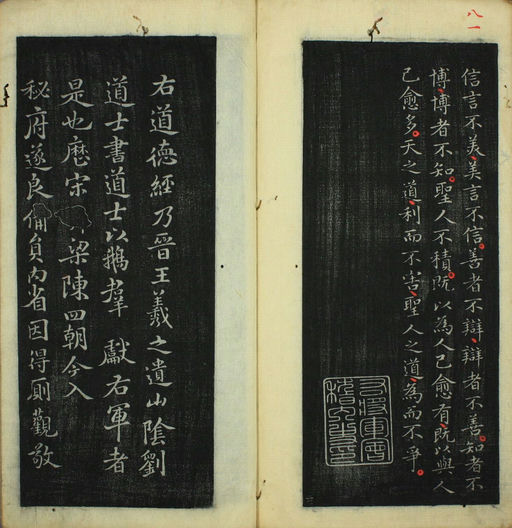 八一
信言不美美言不信善者不辯辯者不善知者不
博博者不知聖人不積既以為人己愈有既以與人
己愈多天之道利而不害聖人之道為而不爭
右道德經乃晉王羲之遺山陰劉
道士書道士以鵝羣獻右軍者
是也歷宋梁陳四朝今入
秘府遂良備員內省因得厠觀敬